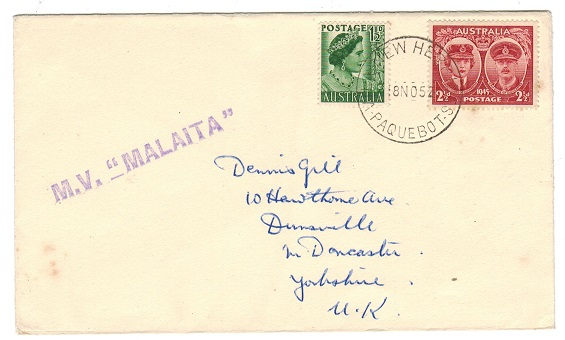 POSTAGE
1½D
AUSTRALIA
AUSTRALIA
1945
2½D POSTAGE 2½D
NEW HE
8NO52
PAQUEBOT·S
M.V. "MALAITA"
Dennis Gill
10 Hawthorne Ave
Dunsville
Nr Doncaster.
Yorkshire.
U.K.